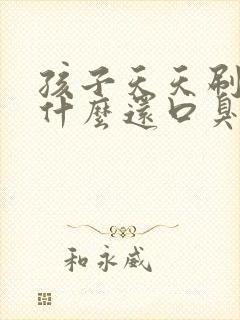 孩子天天刷
什麼還口臭
和永威